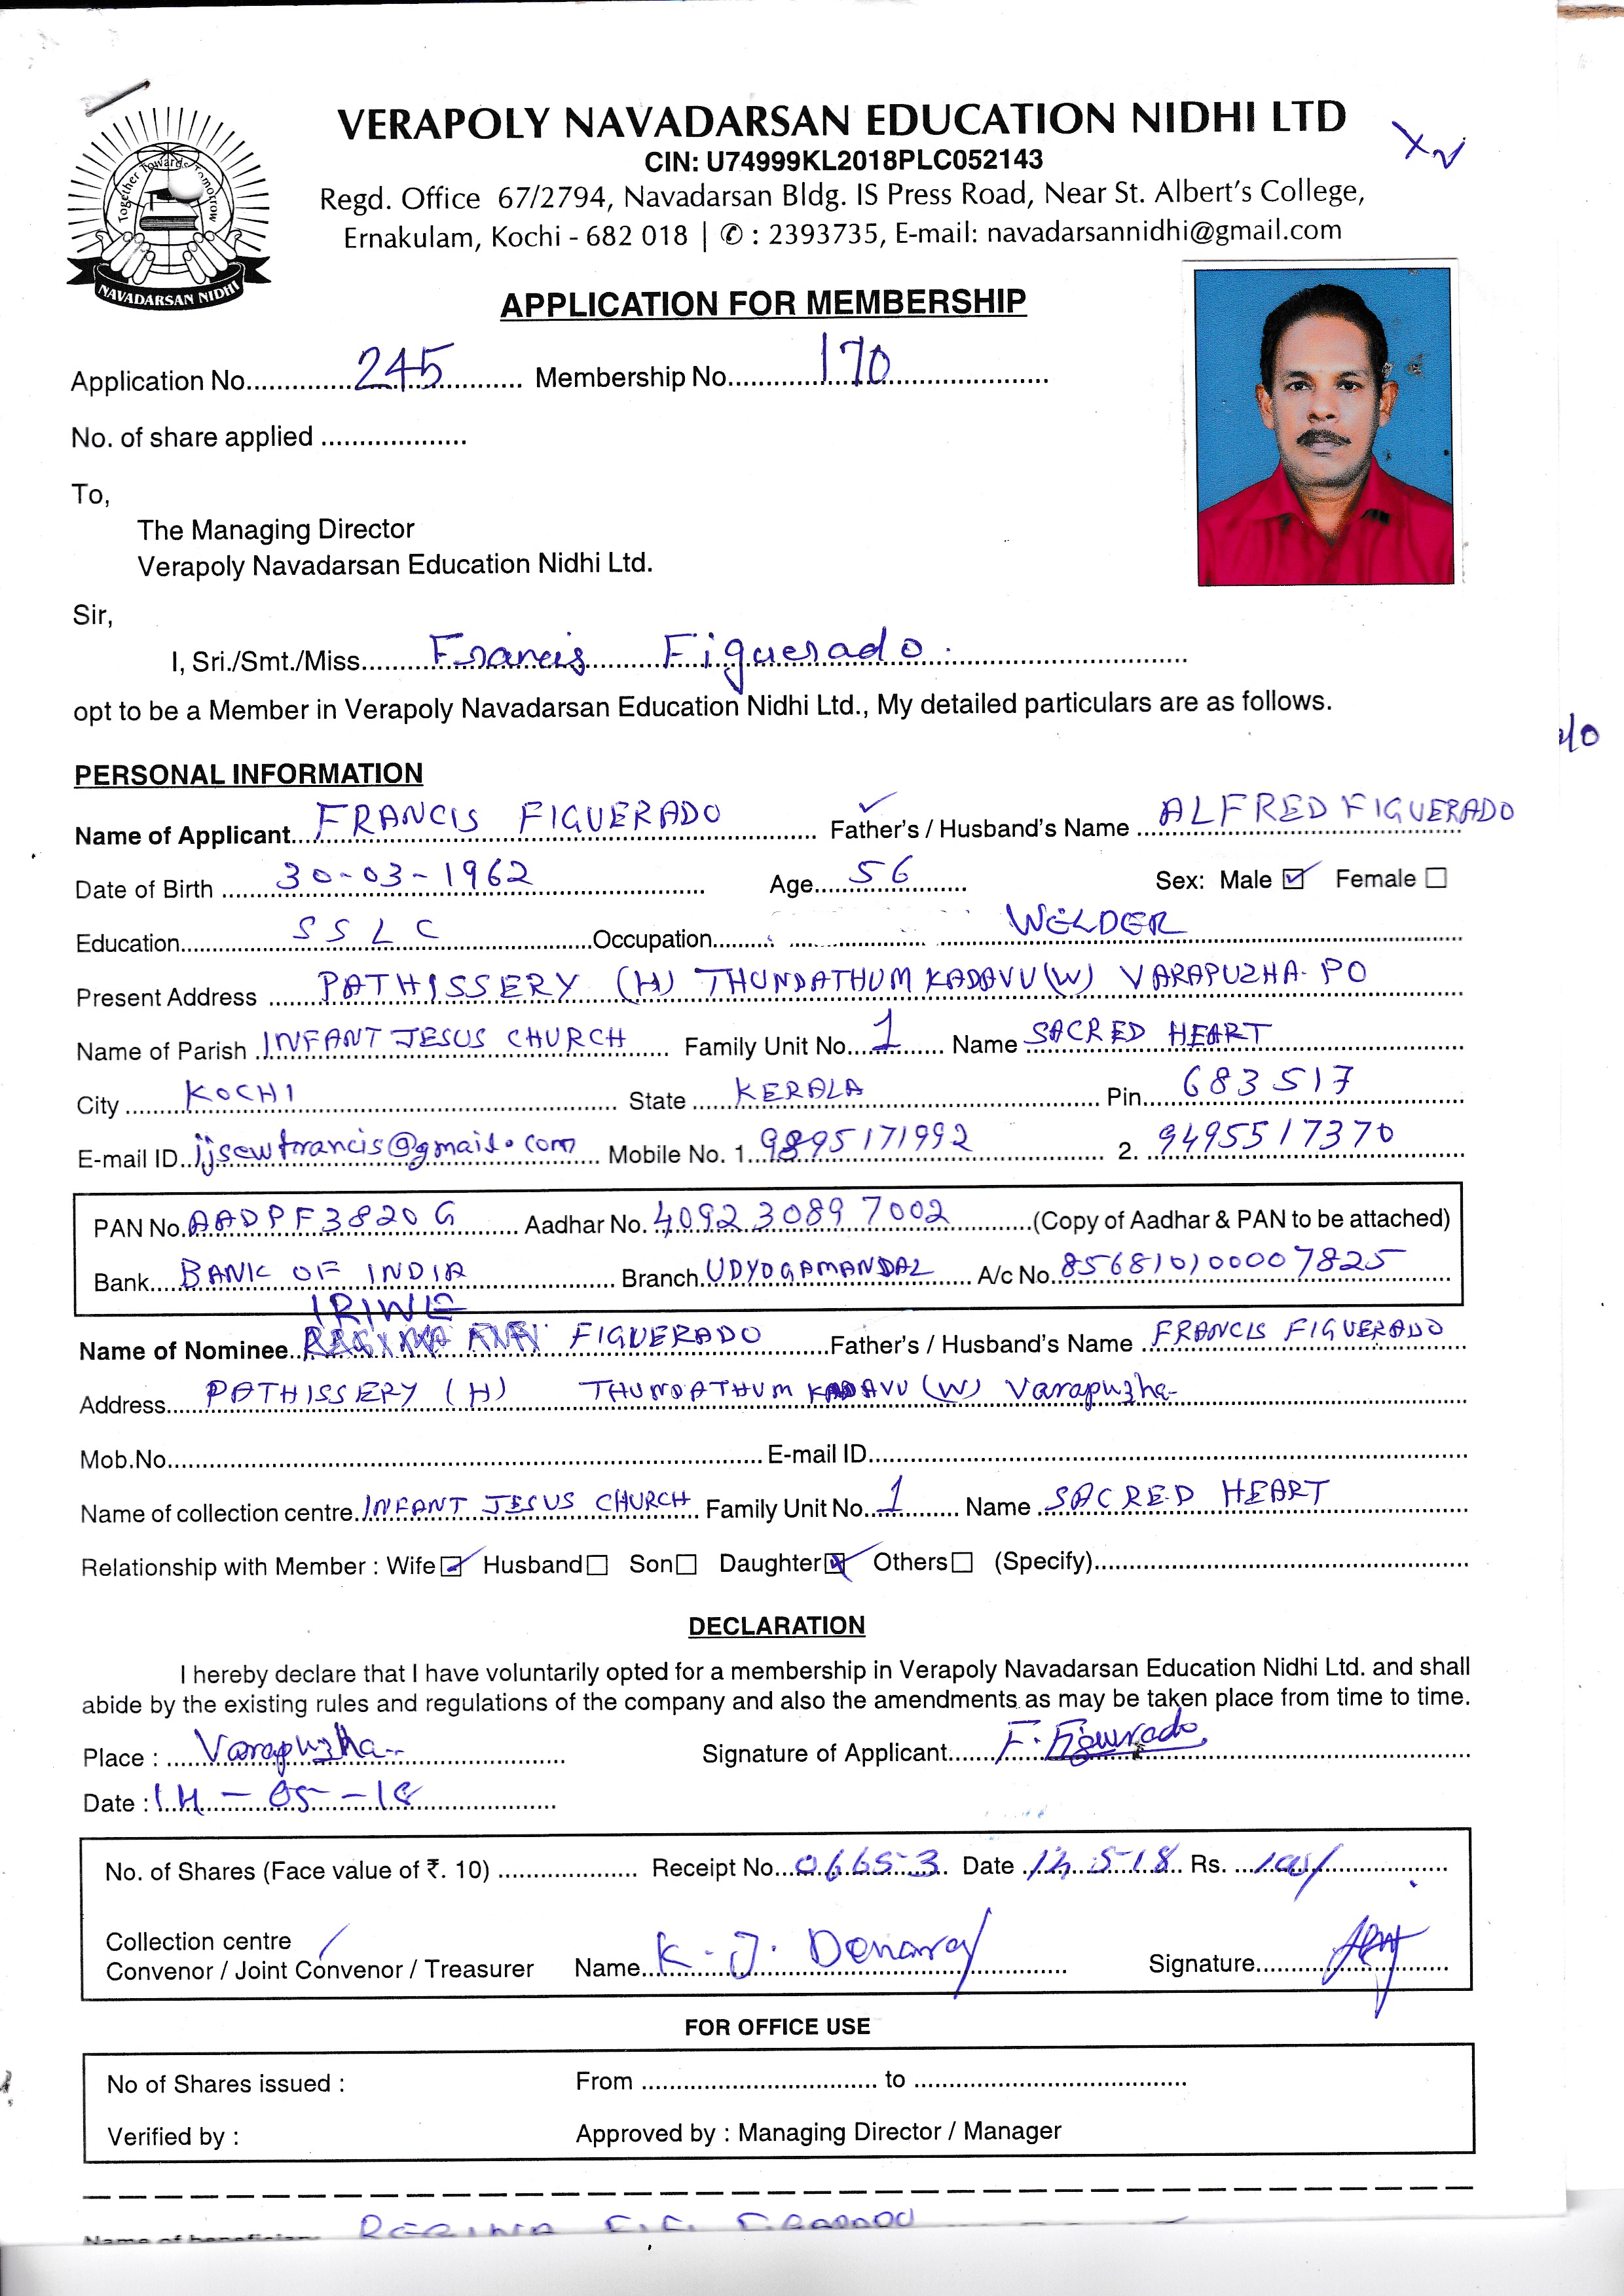 VERAPOLY NAVADARSAN EDUCATION NIDHI LTD
CIN: U74999KL2018PLC052143
Regd. Office 67/2794, Navadarsan Bldg. IS Press Road, Near St. Albert's College,
Ernakulam, Kochi - 682 018 | ✆ : 2393735, E-mail: navadarsannidhi@gmail.com
Together Towards Tomorrow
NAVADARSAN NIDHI
APPLICATION FOR MEMBERSHIP
Application No. 245 Membership No. 170
No. of share applied
To,
The Managing Director
Verapoly Navadarsan Education Nidhi Ltd.
Sir,
I, Sri./Smt./Miss. Francis Figuerado.
opt to be a Member in Verapoly Navadarsan Education Nidhi Ltd., My detailed particulars are as follows.
PERSONAL INFORMATION
Name of Applicant. FRANCIS FIGUERADO Father's / Husband's Name ALFRED FIGUERADO
Date of Birth 30-03-1962 Age. 56 Sex: Male ☑ Female ☐
Education. SSLC Occupation. WELDER
Present Address PATHISSERY (H) THUNDATHUMKADAVU (W) VARAPUZHA. PO
Name of Parish INFANT JESUS CHURCH Family Unit No. 1 Name SACRED HEART
City KOCHI State KERALA Pin. 683517
E-mail ID. ijsewfrancis@gmail.com Mobile No. 1. 9895171992 2. 9495517370
PAN No. AADPF3820G Aadhar No. 4092 3089 7002 (Copy of Aadhar & PAN to be attached)
Bank. BANK OF INDIA Branch. UDYOGAMANDAL A/c No. 856810100007825
Name of Nominee. FIGUERADO Father's / Husband's Name FRANCIS FIGUERADO
Address. PATHISSERY (H) THUNDATHUM KADAVU (W) Varapuzha-
Mob.No. E-mail ID.
Name of collection centre. INFANT JESUS CHURCH Family Unit No. 1 Name SACRED HEART
Relationship with Member : Wife ☑ Husband ☐ Son ☐ Daughter ☑ Others ☐ (Specify)
DECLARATION
I hereby declare that I have voluntarily opted for a membership in Verapoly Navadarsan Education Nidhi Ltd. and shall
abide by the existing rules and regulations of the company and also the amendments as may be taken place from time to time.
Place : Varapuzha Signature of Applicant. F. Figurado
Date : 14-05-18
No. of Shares (Face value of ₹. 10) Receipt No. 0665-3 Date 5-18 Rs. 100/
Collection centre
Convenor / Joint Convenor / Treasurer Name. K.J. Signature.
FOR OFFICE USE
No of Shares issued : From to
Verified by : Approved by : Managing Director / Manager